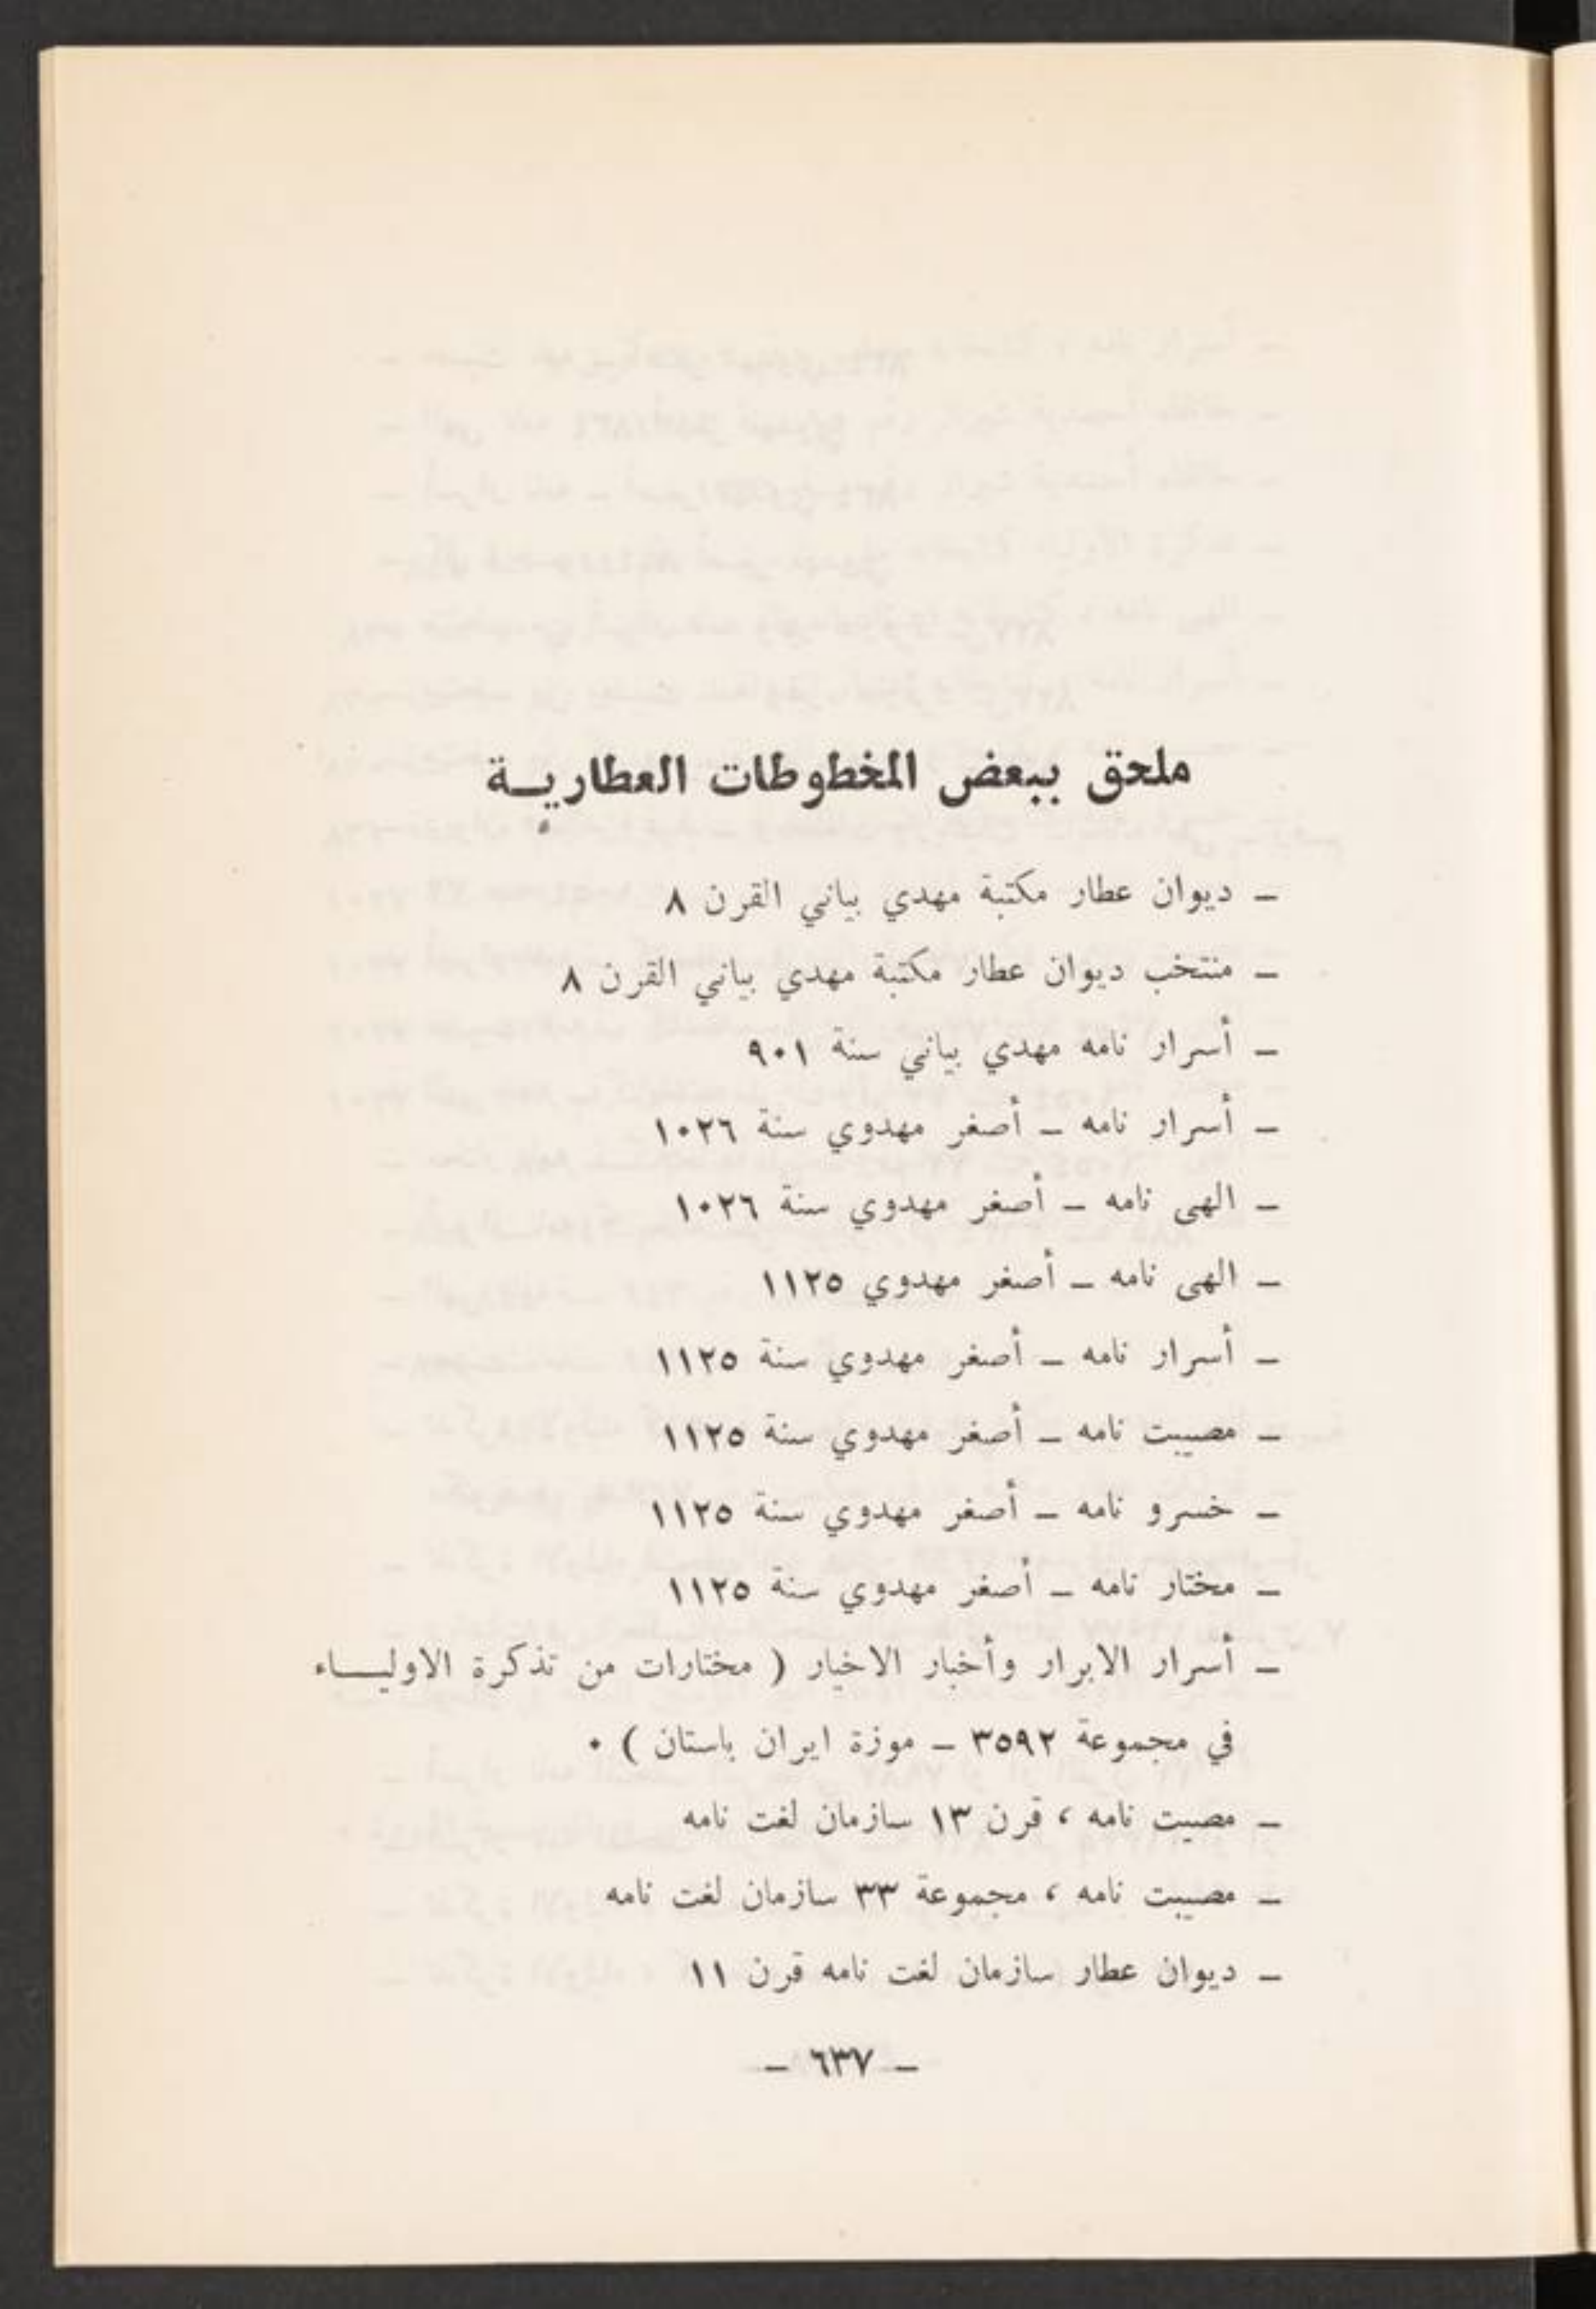 ملحق ببعض المخطوطات العطاريـة
ـ ديوان عطار مكتبة مهدي بياني القرن ٨
ـ منتخب ديوان عطار مكتبة مهدي بياني القرن ٨
ـ أسرار نامه مهدي بياني سنة ٩٠١
ـ أسرار نامه ـ أصغر مهدوي سنة ١٠٢٦
ـ الهى نامه ـ أصغر مهدوي سنة ١٠٢٦
ـ الهى نامه ـ أصغر مهدوي ١١٢٥
ـ أسرار نامه ـ أصغر مهدوي سنة ١١٢٥
ـ مصيبت نامه ـ أصغر مهدوي سنة ١١٢٥
ـ خسرو نامه ـ أصغر مهدوي سنة ١١٢٥
ـ مختار نامه ـ أصغر مهدوي سنة ١١٢٥
ـ أسرار الابرار وأخبار الاخيار ( مختارات من تذكرة الاوليـــاء
في مجموعة ٣٥٩٢ ـ موزة ايران باستان ) ٠
ـ مصيبت نامه ، قرن ١٣ سازمان لغت نامه
ـ مصيبت نامه ، مجموعة ٣٣ سازمان لغت نامه
ـ ديوان عطار سازمان لغت نامه قرن ١١
ـ ٦٣٧ ـ